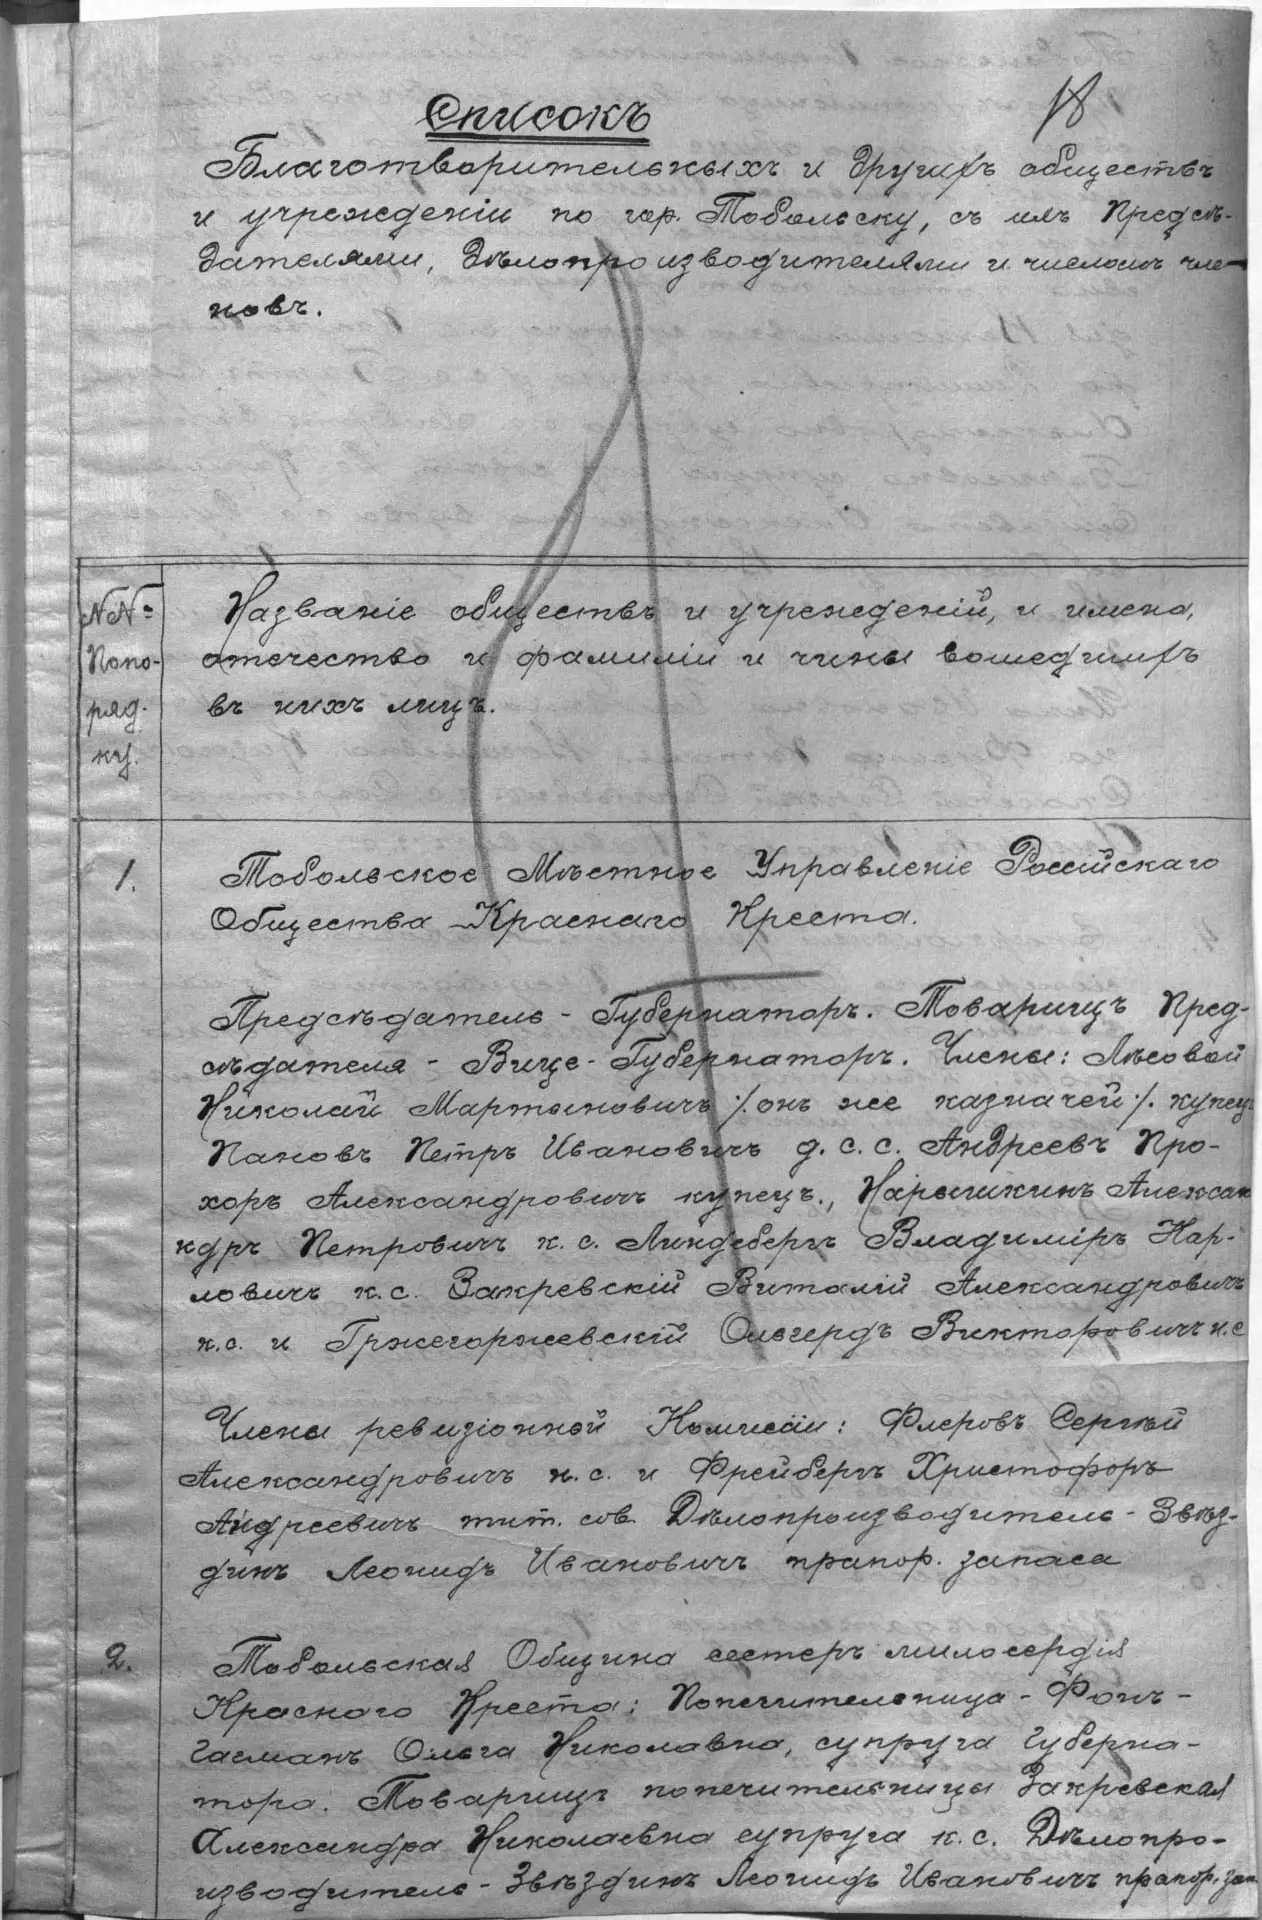 Списокъ
18
Благотворительныхъ и другихъ обществъ
и учрежденіи по гор. Тобольску, съ ихъ Предсѣ-
дателями, дѣлопроизводителями и числомъ чле-
новъ.
№№
Попо-
ряд-
ку.
Названіе обществъ и учрежденій, и имена,
отечество и фамиліи и чины вошедшихъ
въ нихъ лицъ.
1.
Тобольское Мѣстное Управленіе Россійскаго
Общества Краснаго Креста.
Предсѣдатель - Губернаторъ. Товарищъ Пред-
сѣдателя - Вице-Губернаторъ. Члены: Лѣсовой
Николай Мартыновичъ /. онъ же казначей /. купецъ
Пановъ Петръ Ивановичъ д. с. с. Андреевъ Про-
хоръ Александровичъ купецъ., Нарышкинъ Алексан
ндръ Петровичъ к. с. Линдебергъ Владиміръ Кар-
ловичъ к. с. Закревскій Виталій Александровичъ
к. с. и Гржегоржевскій Ольгердъ Викторовичъ н. с
Члены ревизіонной Комисіи: Флеровъ Сергѣй
Александровичъ н. с. и Фрейбергъ Христофоръ
Андреевичъ тит. сов. Дѣлопроизводитель - Звѣз-
динъ Леонидъ Ивановичъ прапор. запаса
2.
Тобольская Община сестеръ милосердія
Краснаго Креста: Попечительница - Фонъ-
Гагманъ Ольга Николавна, супруга Губерна-
тора. Товарищъ попечительницы Закревская
Александра Николаевна супруга к. с. Дѣлопро-
изводитель - Звѣздинъ Леонидъ Ивановичъ прапор. зап.